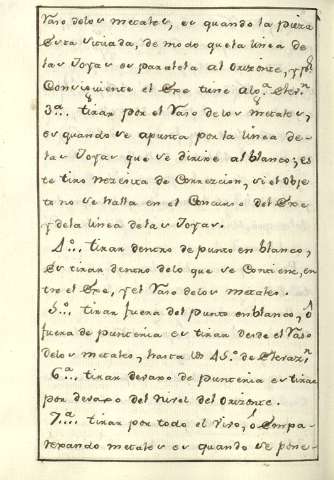 Raso delos metales, es quando la pieza
esta situada, de modo que la linea de
las Joyas es paralela al Orizonte, y pr
Consiguiente el Exe tiene algn Elevn
3a.. tirar por el Raso delos metales,
es quando se apunta por la linea de
las Joyas que se dirine al blanco; es
te tiro necesita de Correzcion, si el Obje
to no se halla en el Concurso del Exe
y dela linea de las Joyas.
4o... tirar dentro de punto en blanco,
es tirar dentro delo que se Contiene, en
tre el Exe, y el Raso delos metales.
5o... tirar fuera del punto en blanco, ó
fuera de punteria es tirar desde el Raso
delos metales, hasta los 45.o de Elevazn.
6a... tirar devaxo de punteria es tirar
por devaxo del nivel del Orizonte.
7a... tirar por todo el Viso, ó Empa
rexando metales es quando se pone-